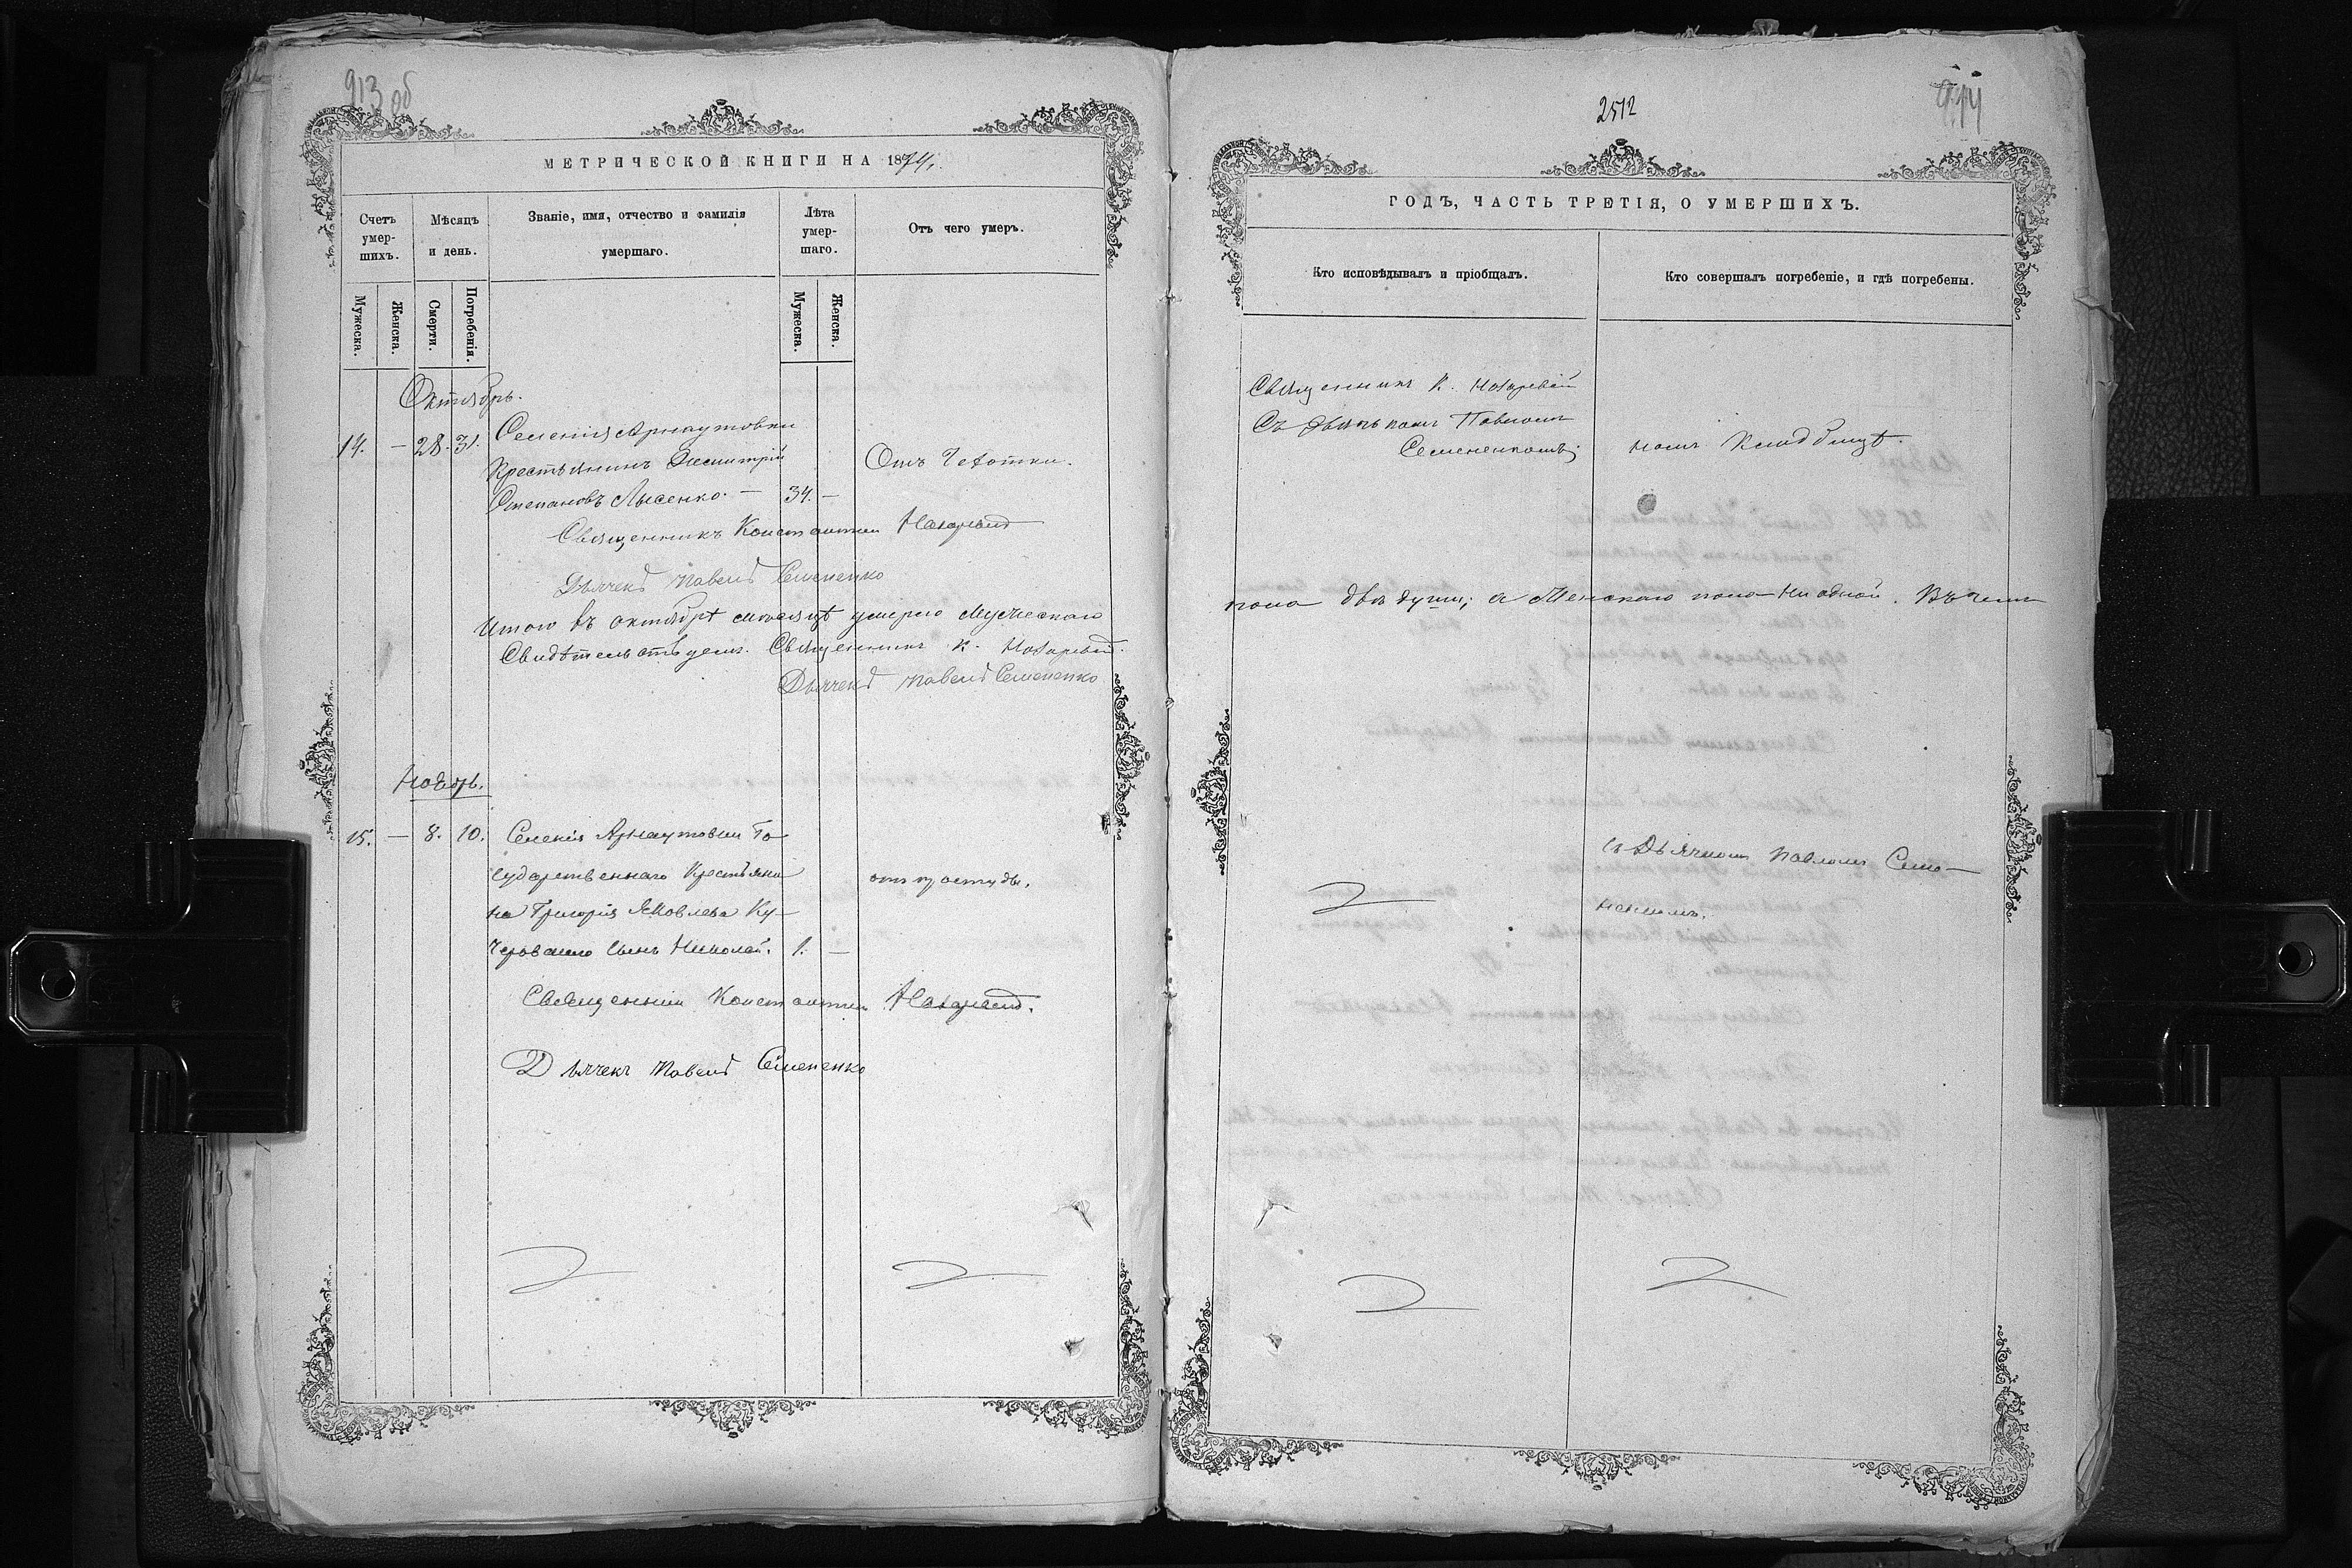 913 об
МЕТРИЧЕСКОЙ КНИГИ НА 1874,
Счетъ умер-шихъ.
Мѣсяцъ и день.
Званіе, имя, отчество и фамилія умершаго.
Лѣта умер-шаго.
Отъ чего умеръ.
Мужеска.
Женска.
Смерти.
Погребенія.
Мужеска.
Женска.
Октябрь.
14. — 28. 31. Селенія Арнаутовки
Крестьянинъ Димитрій
Отъ Чехотки.
Степановъ Лысенко. — 34. —
Священникъ Константин Назаревій
Дьячекъ Павелъ Семененко
Итого въ октябрѣ месяцѣ умерло Мужескаго
Свидѣтельствуем. Священникъ К. Назаревій.
Дьячекъ Павелъ Семененко
Ноябрь.
15. — 8. 10. Селенія Арнаутовки Го-
сударственнаго Крестьяни
отъ простуды.
на Григорія Яковлева Ку-
чероваго сынъ Николай. 1. —
Священник Константин Назаревій.
Дьячекъ Павелъ Семененко
2512
914
ГОДЪ, ЧАСТЬ ТРЕТІЯ, О УМЕРШИХЪ.
Кто исповѣдывалъ и пріобщалъ.
Кто совершалъ погребеніе, и гдѣ погребены.
Священникъ К. Назаревій
Съ Дьячкомъ Павломъ
Семененкомъ;
номъ Кладбищѣ.
пола двѣ души; а Женскаго пола ни одной. Въ чемъ
съ Дьячкомъ Павломъ Семе-
ненкомъ.